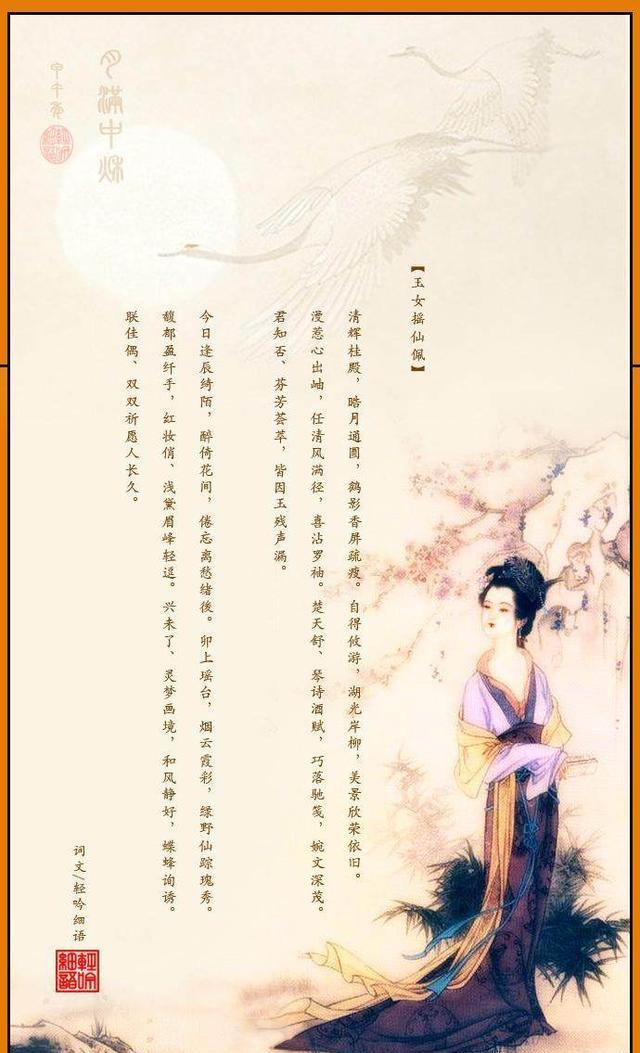 【玉女摇仙佩】
清辉桂殿，皓月通圆，鹤影香屏疏瘦。自得攸游，湖光岸柳，美景欣荣依旧。
漫惹心出岫，任清风满径，喜沾罗袖。楚天舒、琴诗酒赋，巧落驰笺，婉文深茂。
君知否、芬芳荟萃，皆因玉残声漏。
今日逢辰绮陌，醉倚花间，倦忘离愁绪後。卯上瑶台，烟云霞彩，绿野仙踪瑰秀。
馥郁盈纤手，红妆俏、浅黛眉峰轻逗。兴未了、灵梦画境，和风静好，蝶蜂询诱。
联佳偶、双双祈愿人长久。
月滿中秌
甲午年
词文/轻吟细语
輕吟細語